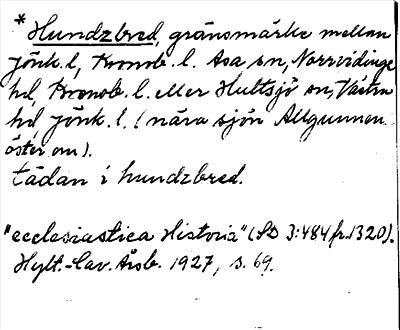 * Hundzbred, gränsmärke mellan
Jönk. l, Kronob. l. Asa sn, Norrvidinge
hd, Kronob. l. eller Hultsjö sn, Västra
hd Jönk. l. (nära sjön Allgunnen
öster om).
tädan i hundzbred.
"ecclesiastica Historia" (SD 3:484 fr. 1320).
Hylt.-Cav. Årsb. 1927, s. 69.